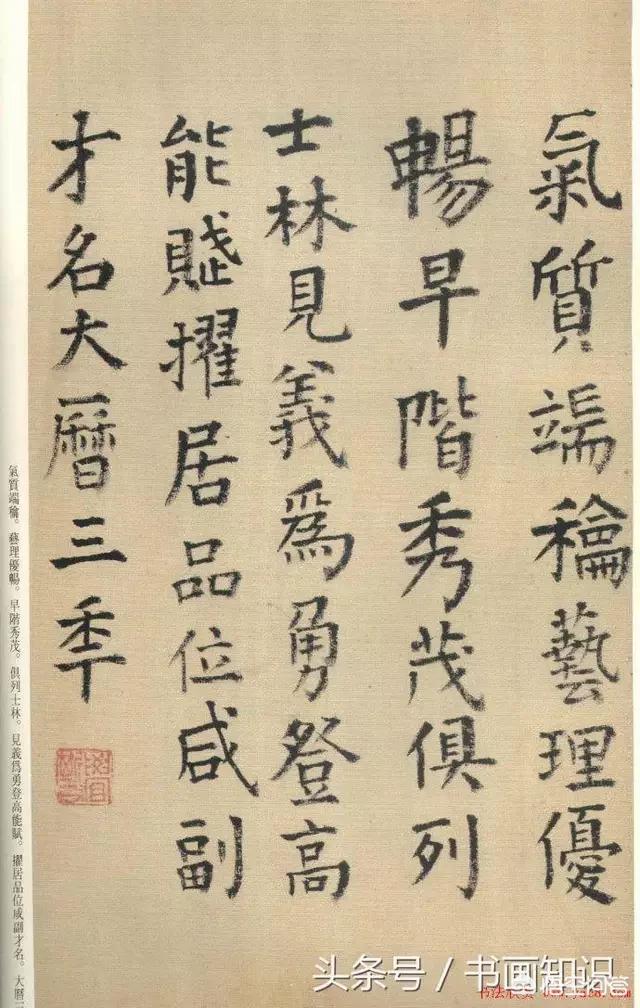 氣質端稐藝理優
暢早階秀茂俱列
士林見義爲勇登高
能賦擢居品位咸副
才名大曆三年
氣質端稐。藝理優暢。早階秀茂。俱列士林。見義爲勇登高能賦。擢居品位咸副才名。大曆三
头条号／书画知识